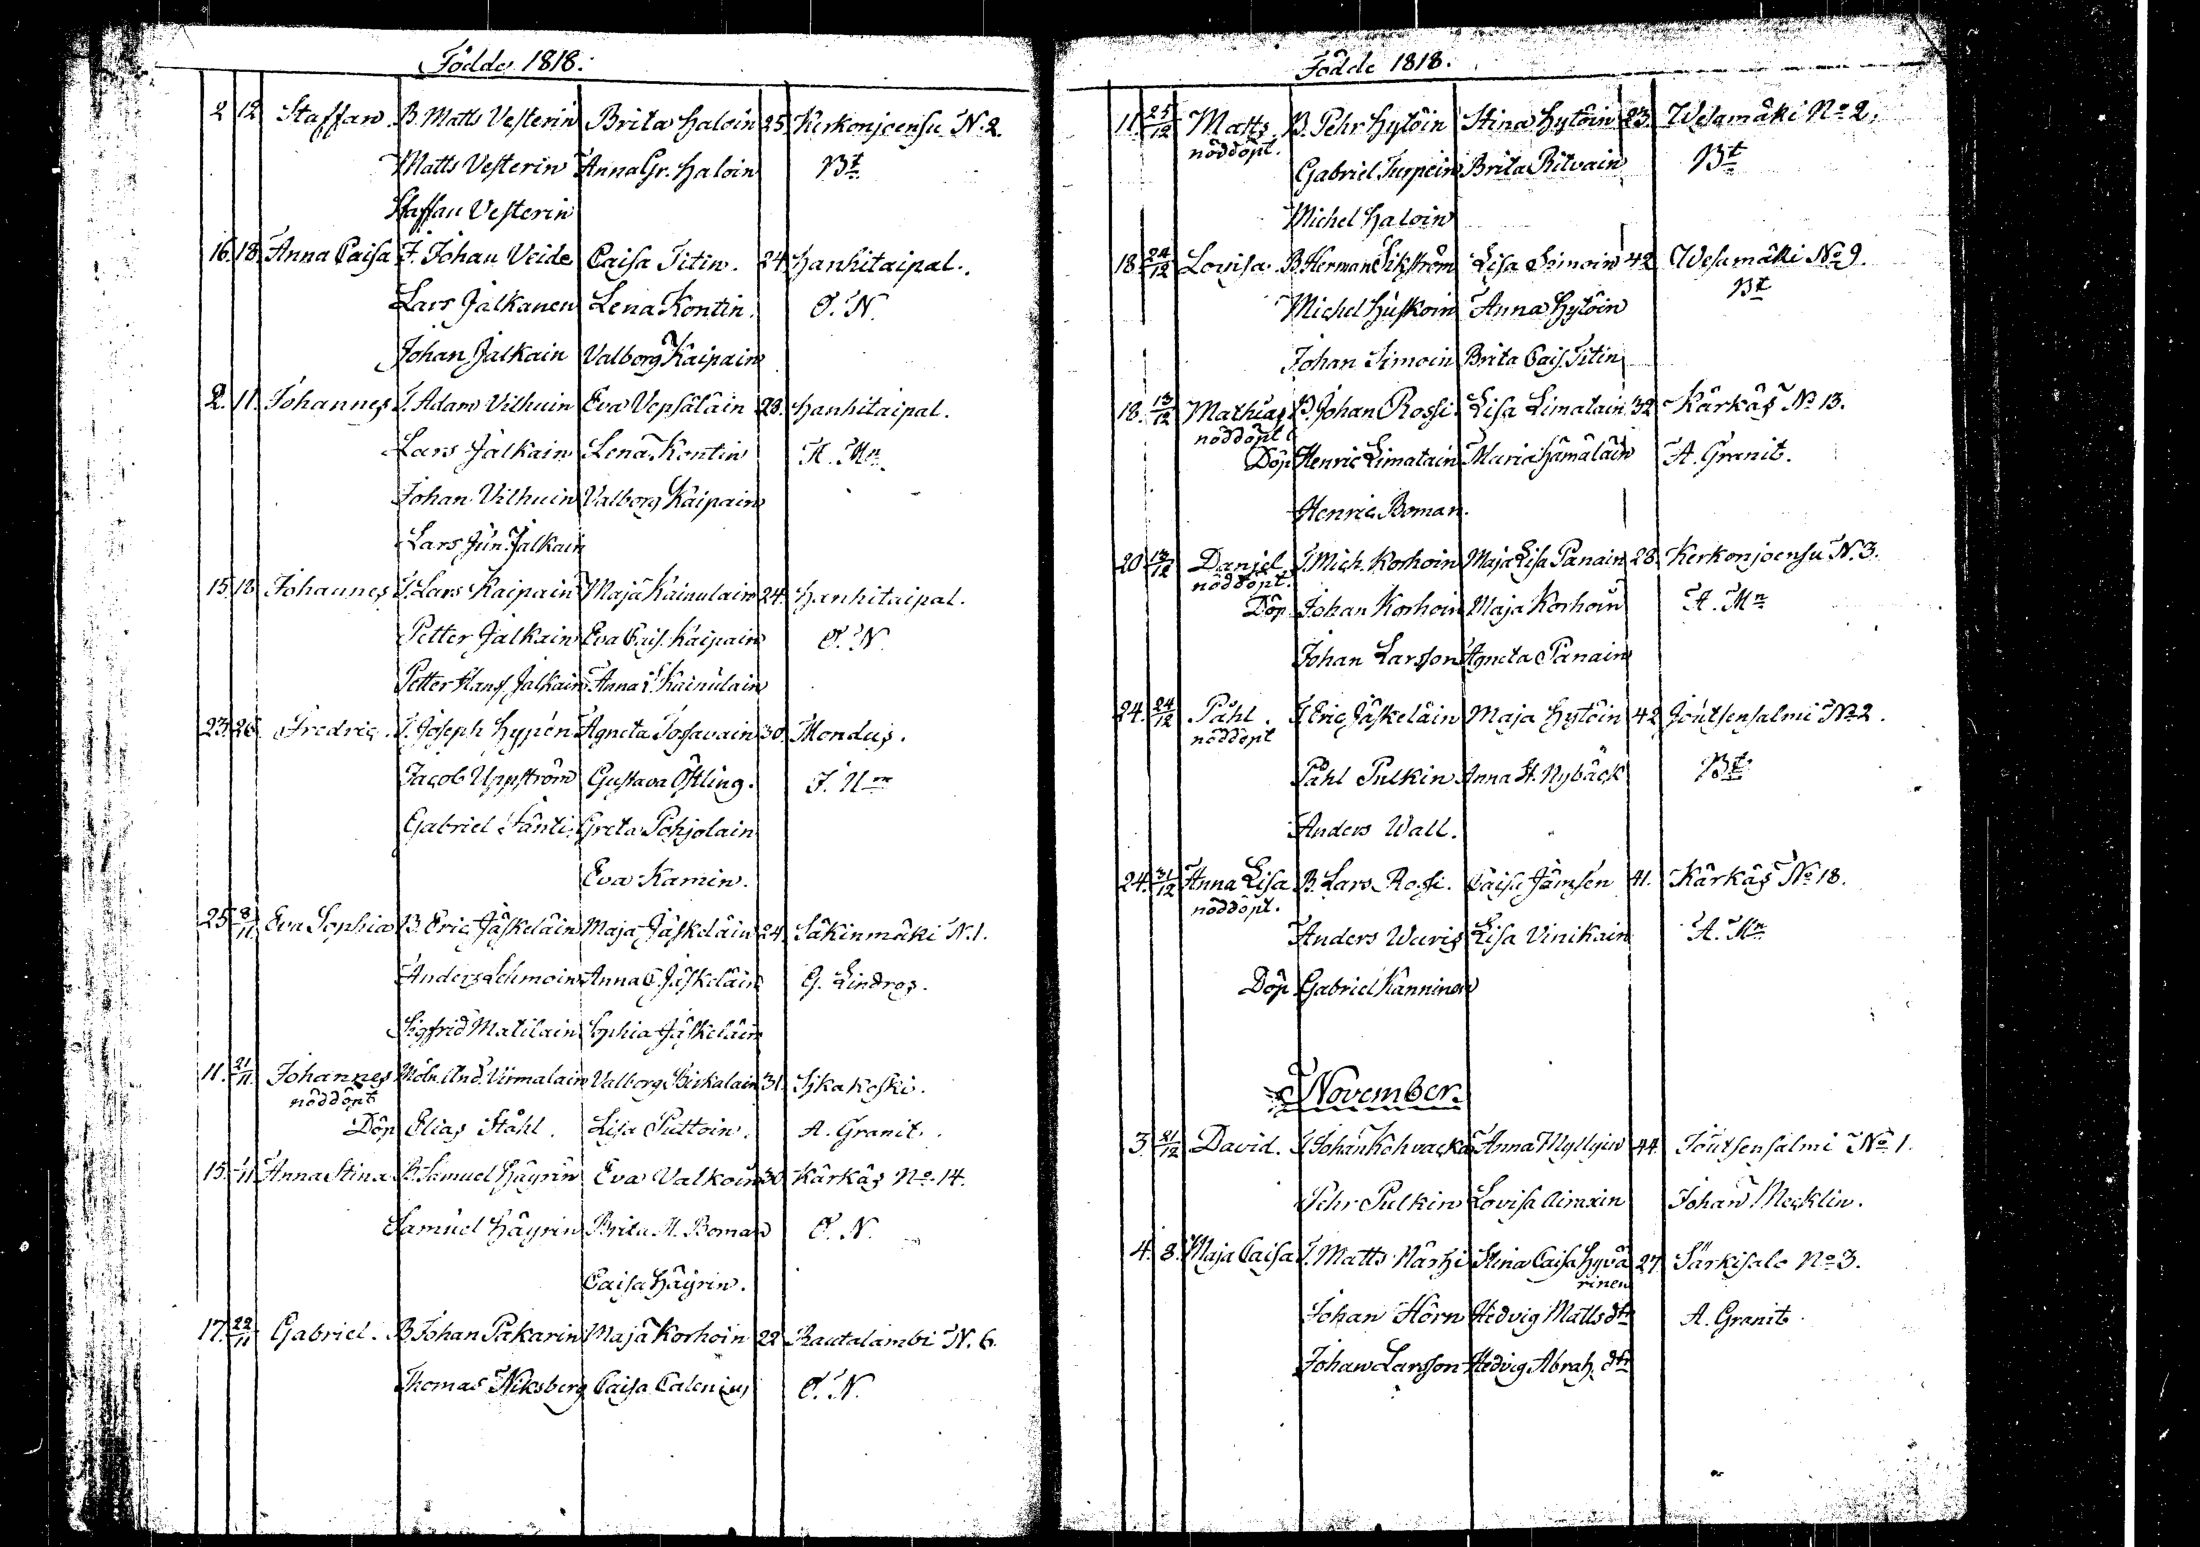 Födde 1818.
2 12 Staffan B. Matts Vesterin Brita Haloin 25. Kerkonjoensu N. 2.
Matts Vesterin Anna Gr. Haloin Bt
Staffan Vesterin
16. 18. Anna Caisa J. Johan Veide Caisa Titin. 24. Hanhitaipal.
Lars Jalkanen Lena Kontin. O. N.
Johan Jalkain Valborg Kaipain
2. 11. Johannes T. Adam Vilhuin Eva Vepsäläin 28. Hanhitaipal.
Lars Jalkain Lena Kontin A. Mn
Johan Vilhuin Valborg Kaipain
Lars Jun. Jalkain
15. 18 Johannes T. Lars Kaipain Maja Kainulain 24. Hanhitaipal.
Petter Jalkain Eva Cais. Kaipain O. N.
Petter Hans. Jalkain Anna Kainulain
23. 26 Fredric. T. Joseph Hypén Agneta Tossavain 30. Mondus.
Jacob Uppström Gustava Östling.
Gabriel Jänti Greta Pohjolain
Eva Kamin.
25. 8/11 Eva Sophia B. Eric Jäskeläin Maja Jäskeläin 24. Säkinmäki N. 1.
Anders Lehmoin Anna C. Jäskeläin G. Lindros.
Sigfrid Matilain Sophia Jäskeläin
11. 21/11 Johannes Möln. And. Virmalain Valborg Pirkalain 31. Sikakoski.
nöddöpt
Döp Elias Ståhl. Lisa Puttoin. A. Granit.
15. 11 Anna Stina B. Samuel Häyrin Eva Valkoin 30. Kärkäs No. 14.
Samuel Häyrin Brita M. Boman O. N.
Caisa Häyrin.
17. 22/11 Gabriel. B. Johan Pakarin Maja Korhoin 22 Rautalambi N. 6.
Thomas Niksberg Caisa Calenius O. N.
Födde 1818.
11. 25/12 Matts B. Pehr Hytöin Stina Hytöin 23. Wesamäki No 2.
nöddöpt.
Gabriel Turpein Brita Ritvain Bt
Michel Haloin
18. 24/12 Lovisa. B. Herman Sikström Lisa Simoin 42 Wesamäki No 9.
Michel Huskoin Anna Hytöin Bt
Johan Simoin Brita Cais. Titin
18. 13/12 Mathias B. Johan Rossi Lisa Limatain 32 Kärkäs No 13.
nöddöpt
Döp Henric Limatain Maria Hämäläin A. Granit.
Henric Boman.
20 13/12 Daniel T. Mich. Korhoin Maja Lisa Panain 28. Kerkonjoensu N. 3.
nöddöpt.
Döp Johan Korhoin Maja Korhoin A. Mn
Johan Larsson Agneta Panain
24. 24/12 Påhl. T. Eric Jäskeläin Maja Hytöin 42 Joutsensalmi No 2.
nöddöpt
Påhl Pulkin Anna St. Nybäck Bt
Anders Wall.
24. 31/12 Anna Lisa B. Lars Rossi. Caisa Jämsén 41. Kärkäs No 18.
nöddöpt.
Anders Wuris Lisa Vinikain A. Mn
Döp Gabriel Kanninen
November.
3. 21/12 David. Anna Myllyin 44. Joutsensalmi No 1.
Pehr Pulkin Lovisa Airaxin Johan Mecklin.
4. 8. Maja Caisa T. Matts Närhi Stina Caisa Hyvä 27. Särkisalo No 3.
rinen
Johan Hörn Hedvig Mattsdtr A. Granit
Johan Larsson Hedvig Abrah. dtr